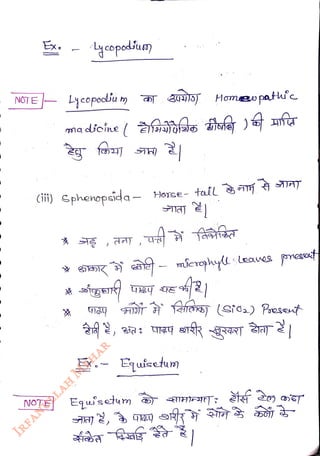 Ex. - Lycopodium
NOTE Lycopodium का उपयोग Homeopathic
madicine ( होमियोपैथिक औषधि ) की प्राप्ति
हेतु किया जाता है|
(iii) Sphenopsida - Horse-tail के नाम से जाना
जाता है|
* जड़, तना, पत्ती में विभेदित
* आकार में छोटी - microphyll leaves present
* अंकुधारी पादप यह की है|
* पादप भागों में सिलिका (SiO2) Present
होती है, अतः पादप शरीर खुरदरा होता है|
Ex. - Equisetum
NOTE Equisetum को सामान्यतः हॉर्स टेल कहा
जाता है, के पादप शरीर में सोने के कणों के
संकेत दिखाई देते है|